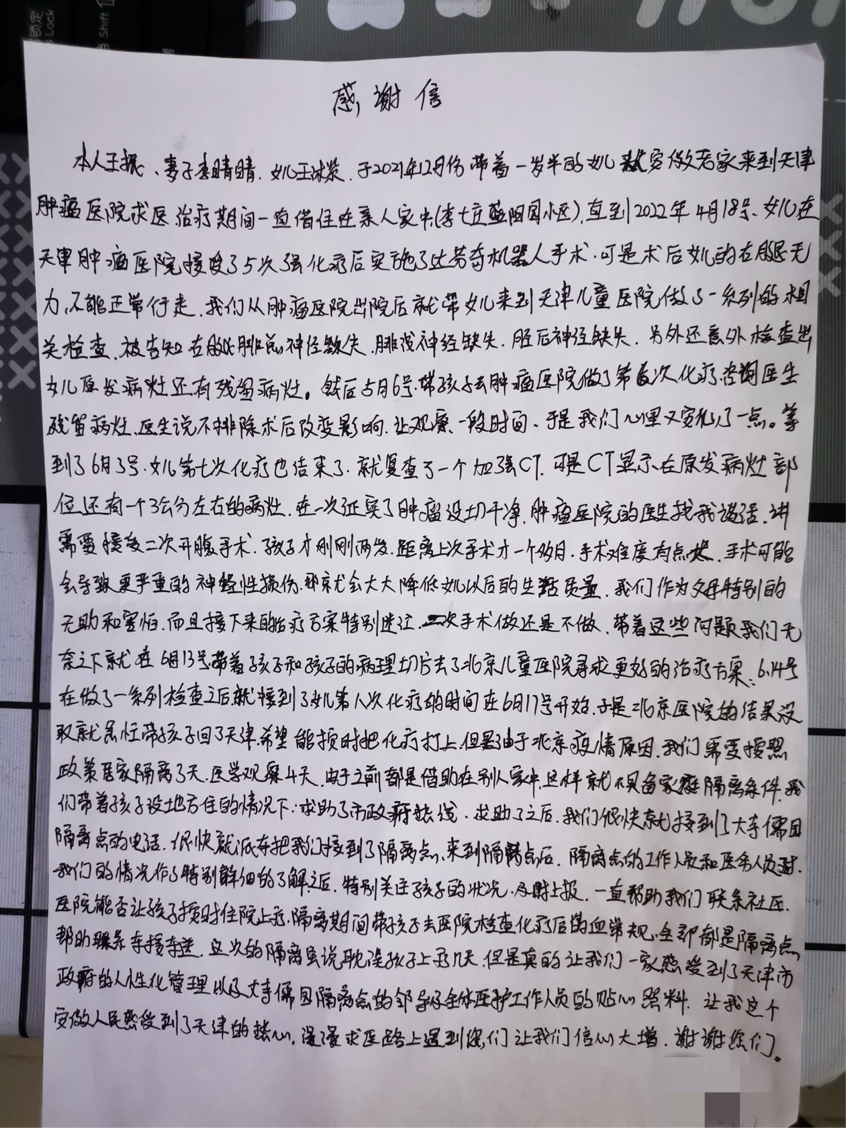 感谢信
本人王振、妻子李晴晴、女儿王冰 于2021年12月份带着一岁半的女儿 安徽老家来到天津
肿瘤医院求医治疗期间一直借住在亲人家中(李七庄蓝阳园小区),直到2022年4月18号、女儿在
天津肿瘤医院接受了5次强化疗后实施了达芬奇机器人手术.可是术后女儿的右腿无
力,不能正常行走.我们从肿瘤医院出院后就带女儿来到天津儿童医院做了一系列的相
关检查、被告知右 腓总神经缺失、腓浅神经缺失、胫后神经缺失.另外还意外检查出
女儿原发病灶还有残留病灶。然后5月6号.带孩子去肿瘤医院做了第 次化疗.咨询医生
残留病灶、医生说不排除术后改变影响.让观察一段时间、于是我们心里又安 了一点。等
到了6月3号.女儿第七次化疗也结束了.就复查了一个加强CT.可是CT显示在原发病灶部
位还有一个3公分左右的病灶.在一次证实了肿瘤没切干净.肿瘤医院的医生找我谈话.讲
需要接受二次开腹手术.孩子才刚刚两岁.距离上次手术才一个多月.手术难度有点大.手术可能
会导致更严重的神经性损伤.那就会大大降低女儿以后的生活质量.我们作为父母特别的
无助和害怕.而且接下来的治疗方案特别迷茫.二次手术做还是不做.带着这些问题我们无
奈之下就在6月13号带着孩子和孩子的病理切片去了北京儿童医院寻求更好的治疗方案.6.14号
在做了一系列检查之后就接到了女儿第八次化疗的时间在6月17号开始.于是北京医院的结果没
取就急忙带孩子回了天津.希望能按时把化疗打上.但是由于北京疫情原因.我们需要按照
政策居家隔离7天.医学观察4天.由于之前都是借助在别人家中.这样就不具备家庭隔离条件.我
们带着孩子没地方住的情况下.求助了市政府热线.求助了之后.我们很快就接到了大寺儒园
隔离点的电话.很快就派车把我们接到了隔离点.来到隔离点后.隔离点的工作人员和医务人员对
我们的情况作了特别详细的了解之后.特别关注孩子的状况.及时上报.一直帮助我们联系社区.
医院能否让孩子按时住院上疗.隔离期间带孩子去医院检查化疗后的血常规.全部都是隔离点
帮助联系车接车送.这次的隔离虽说耽误孩子上疗几天.但是真的让我们一家感受到了天津市
政府的人性化管理以及大寺儒园隔离点的 全体医护工作人员的贴心照料.让我这个
安徽人民感受到了天津的热心.漫漫求医路上遇到你们让我们信心大增.谢谢您们。